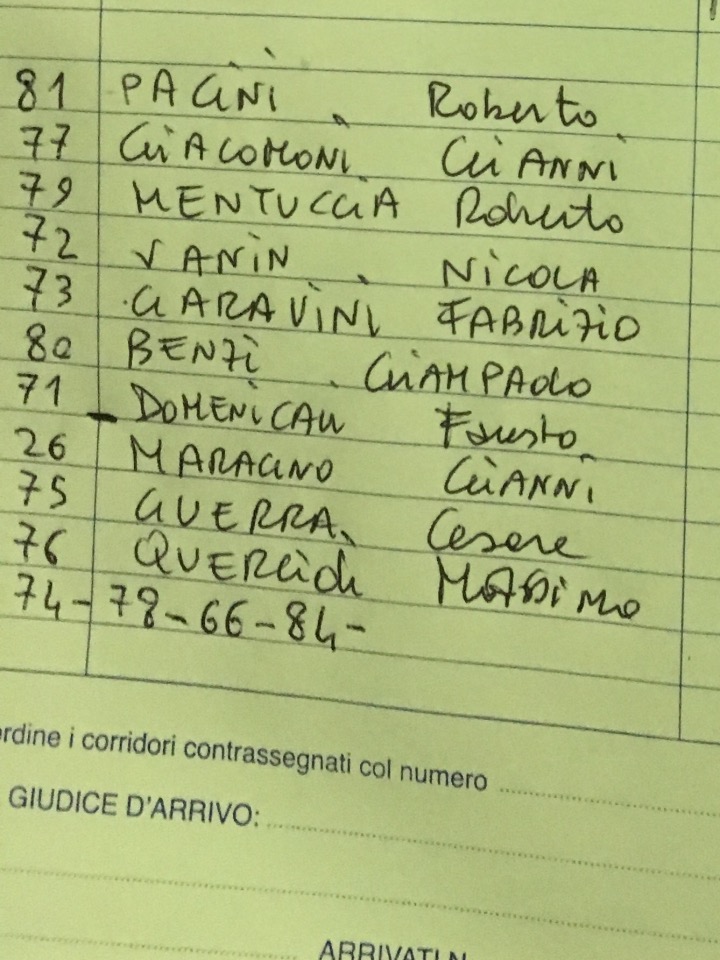 81 PACINI Roberto
77 GIACOMONI GIANNI
79 MENTUCCIA Roberto
72 VANIN NICOLA
73 GARAVINI FABRIZIO
80 BENZI GIAMPAOLO
71 DOMENICALI Fausto
26 MARAGNO GIANNI
75 GUERRA Cesare
76 QUERCIOLI MASSIMO
74-78-66-84-
ordine i corridori contrassegnati col numero
GIUDICE D'ARRIVO:
ARRIVATI N